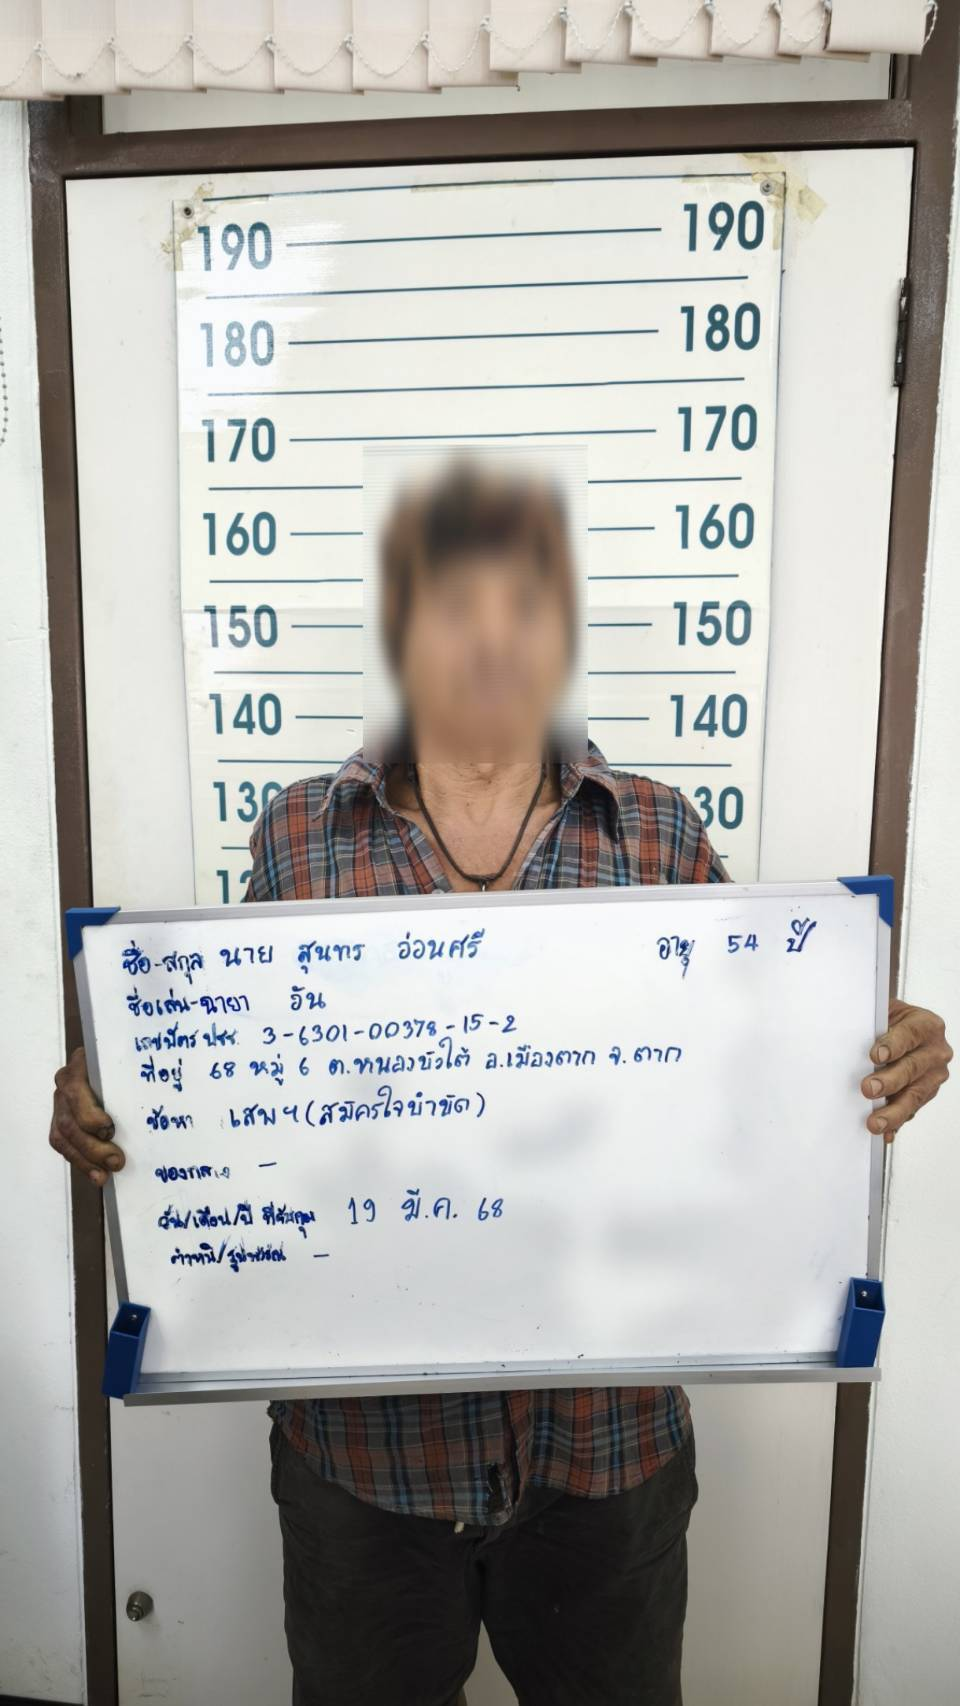 190 190
180 180
170 170
160 160
150 150
140 140
130 30
12
ชื่อ-สกุล นาย สุนทร อ่อนศรี อายุ 54 ปี
ชื่อเล่น-ฉายา อ้น
เลขบัตร ปชช. 3-6301-00378-15-2
ที่อยู่ 68 หมู่ 6 ต.หนองบัวใต้ อ.เมืองตาก จ.ตาก
ข้อหา เสพฯ (สมัครใจบำบัด)
ของกลาง -
วัน/เดือน/ปี ที่จับกุม 19 มี.ค. 68
ตำหนิ/รูปพรรณ -